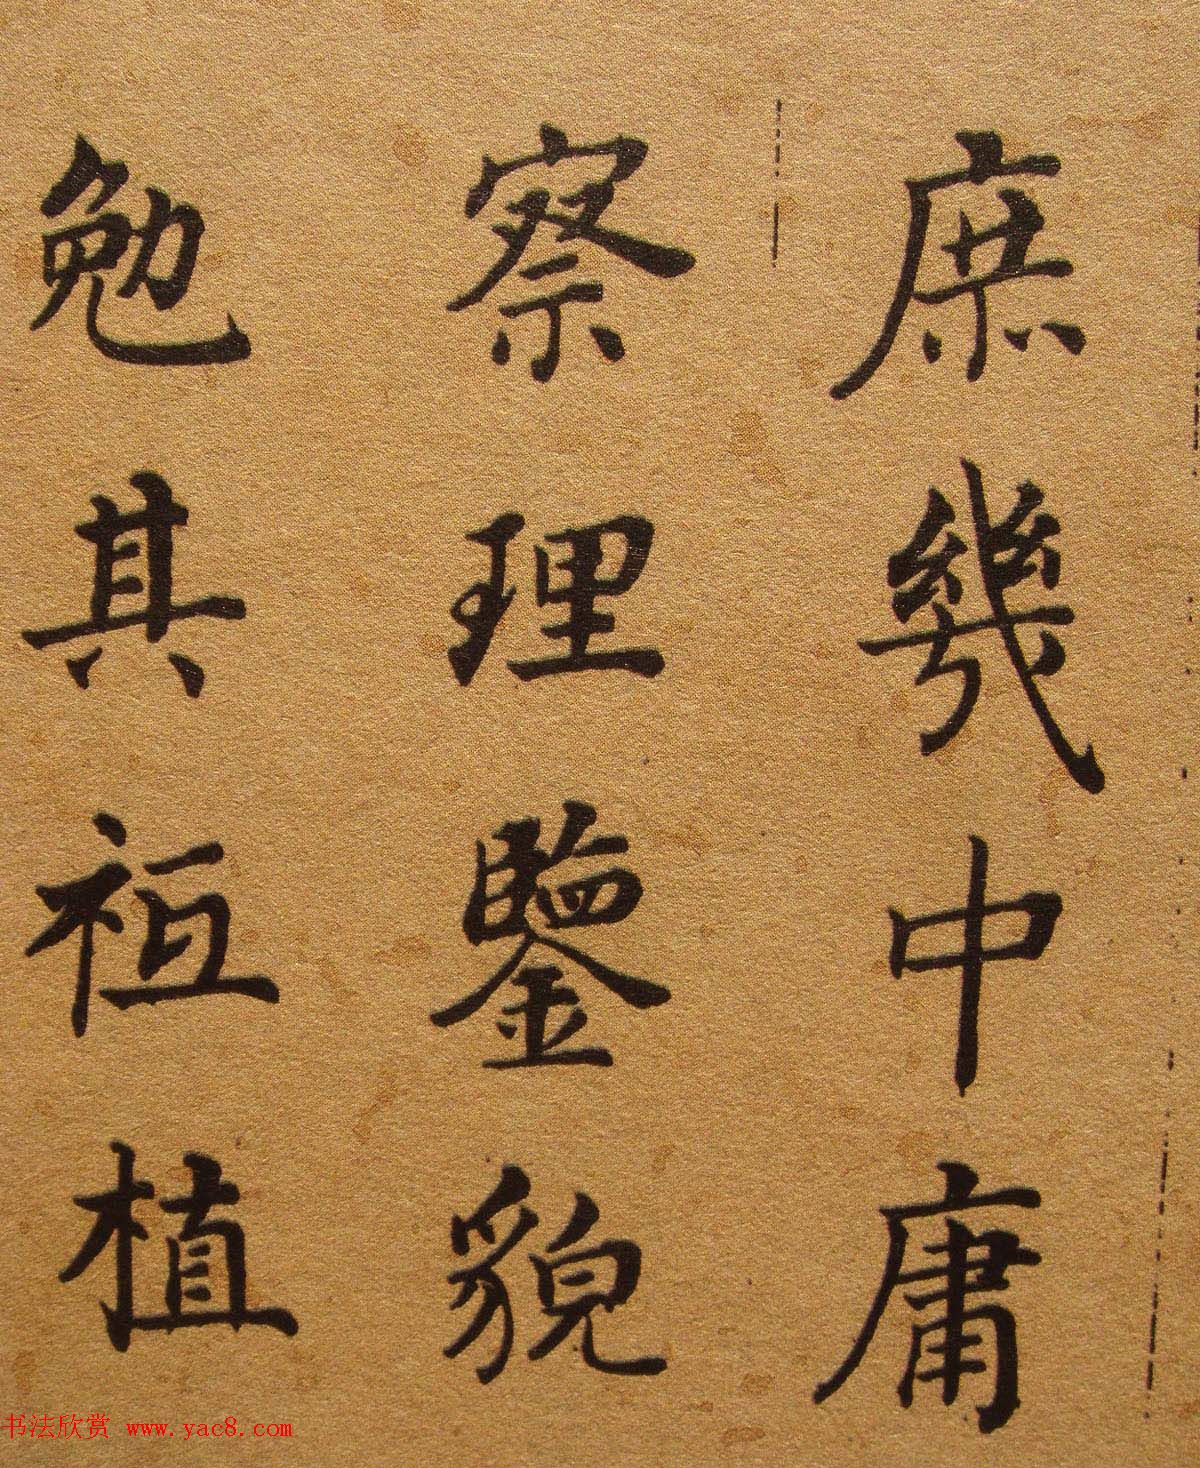 庶幾中庸
察理鑒貌
勉其祗植
书法欣赏 www.yac8.com